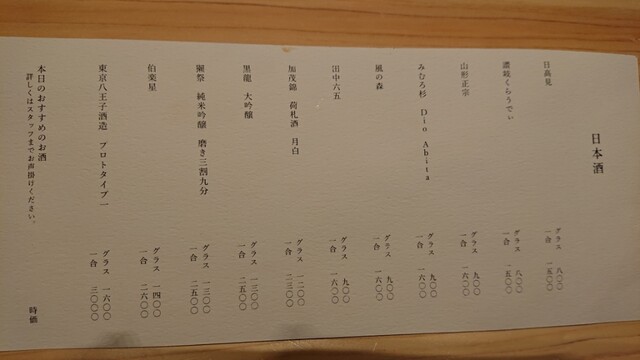 日本酒
日高見
グラス 八〇〇
一合 一五〇〇
濃醇くらうでぃ
グラス 八〇〇
一合 一五〇〇
山形正宗
グラス 九〇〇
一合 一六〇〇
みむろ杉 Dio Abita
グラス 九〇〇
一合 一六〇〇
風の森
グラス 九〇〇
一合 一六〇〇
田中六五
グラス 九〇〇
一合 一六〇〇
加茂錦 荷札酒 月白
グラス 一二〇〇
一合 二三〇〇
黒龍 大吟醸
グラス 一三〇〇
一合 二五〇〇
獺祭 純米吟醸 磨き三割九分
グラス 一三〇〇
一合 二五〇〇
伯楽星
グラス 一四〇〇
一合 二六〇〇
東京八王子酒造 プロトタイプ一
グラス 一六〇〇
一合 三〇〇〇
本日のおすすめのお酒
時価
詳しくはスタッフまでお声掛けください。